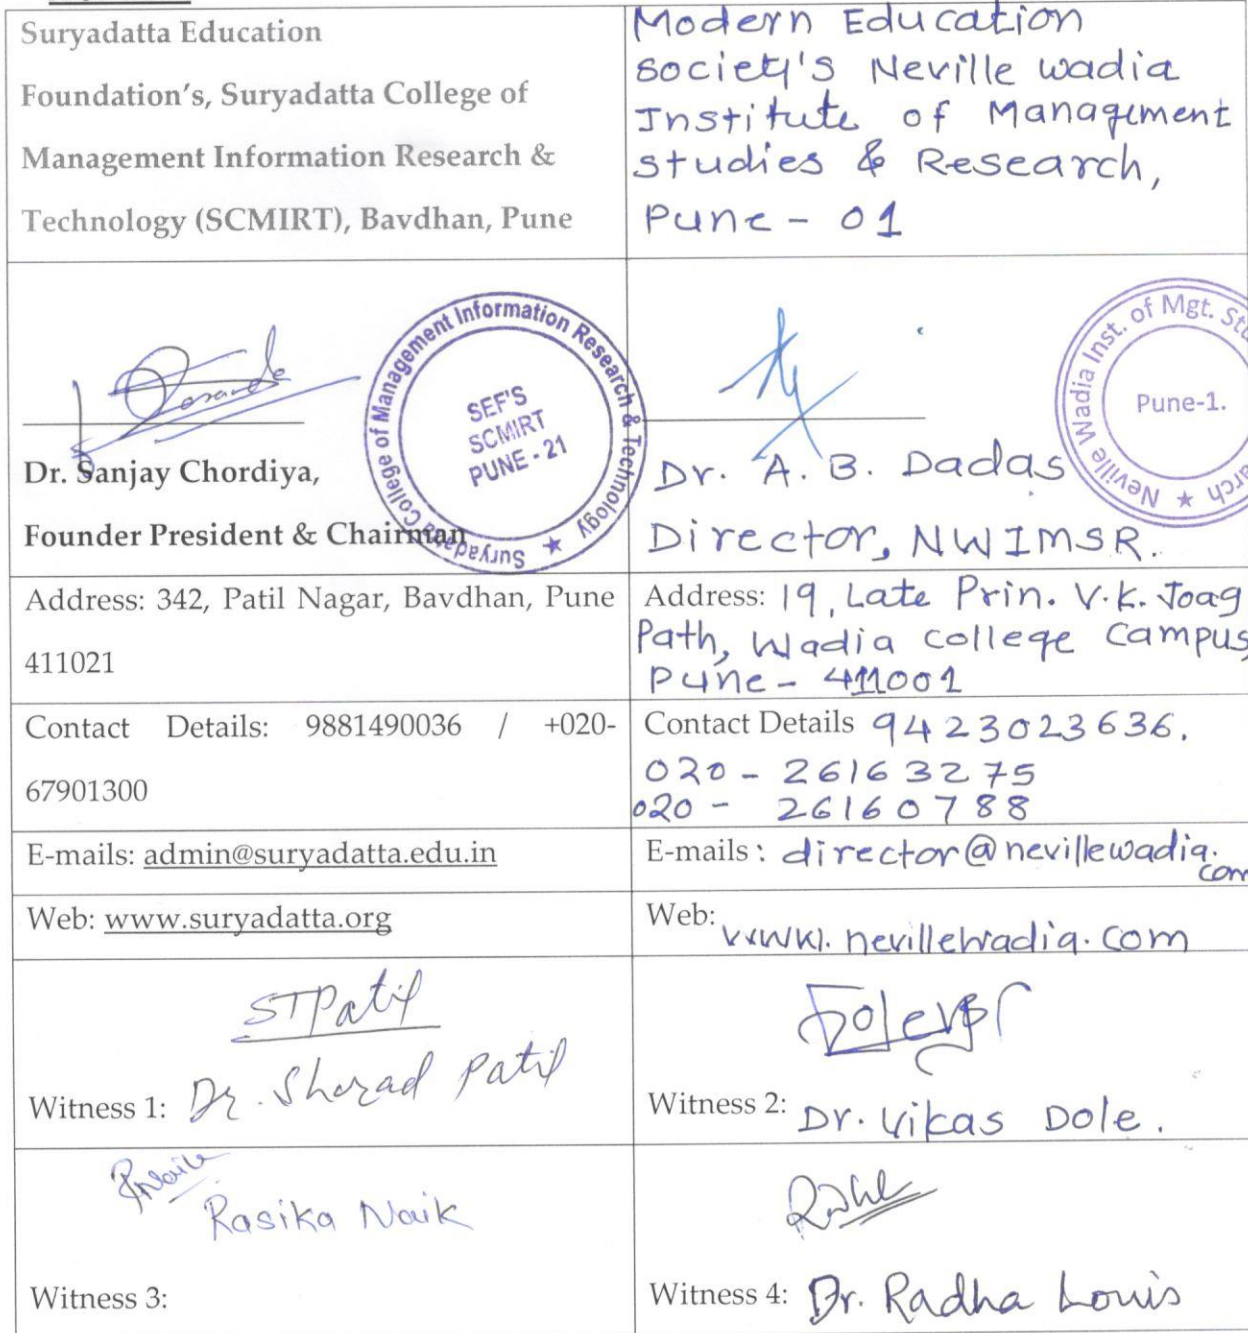 Suryadatta Education
Foundation's, Suryadatta College of
Management Information Research &
Technology (SCMIRT), Bavdhan, Pune
Modern Education
Society's Neville Wadia
Institute of Management
Studies & Research,
Pune - 01
Suryadatta College of Management Information Research & Technology ★
SEF'S
SCMIRT
PUNE - 21
Dr. Sanjay Chordiya,
Founder President & Chairman
Neville Wadia Inst. of Mgt. ★
Pune-1.
Dr. A. B. Dadas
Director, NWIMSR.
Address: 342, Patil Nagar, Bavdhan, Pune
411021
Address: 19, Late Prin. V.K. Joag
Path, Wadia College Campus,
Pune - 411001
Contact Details: 9881490036 / +020-
67901300
Contact Details 9423023636.
020 - 26163275
020 - 26160788
E-mails: admin@suryadatta.edu.in
E-mails: director@nevillewadia.
com
Web: www.suryadatta.org
Web: www.nevillewadia.com
STPatil
Witness 1: Dr. Sharad Patil
Witness 2: Dr. Vikas Dole.
RNaik
Rasika Naik
Witness 3:
Witness 4: Dr. Radha Louis